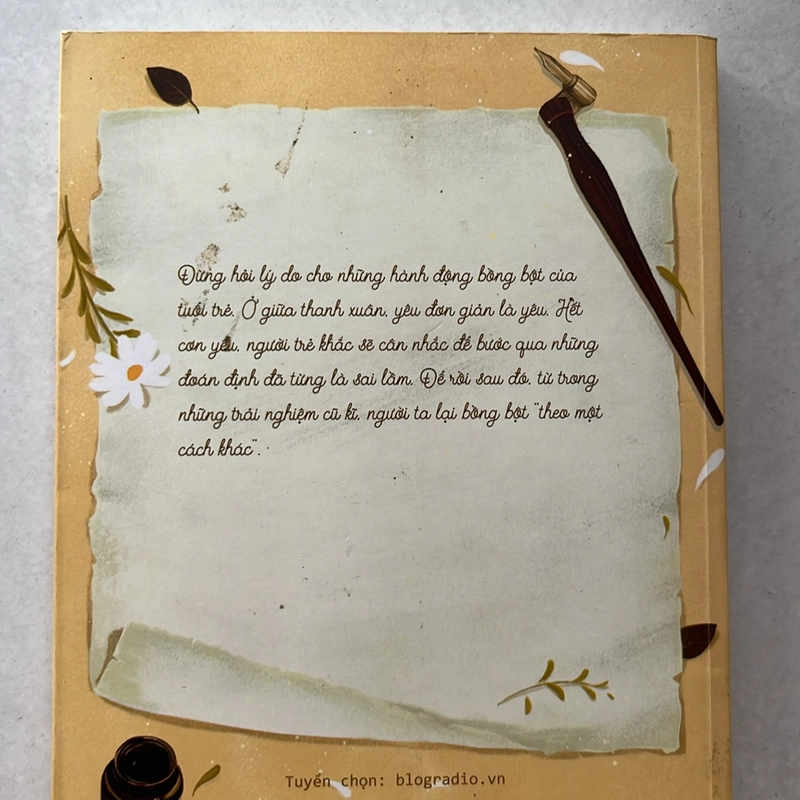 Đừng hỏi lý do cho những hành động bồng bột của
tuổi trẻ. Ở giữa thanh xuân, yêu đơn giản là yêu. Hết
cơn yêu, người trẻ khác sẽ cân nhắc để bước qua những
đoán định đã từng là sai lầm. Để rồi sau đó, từ trong
những trải nghiệm cũ kĩ, người ta lại bồng bột "theo một
cách khác".
Tuyển chọn: blogradio.vn